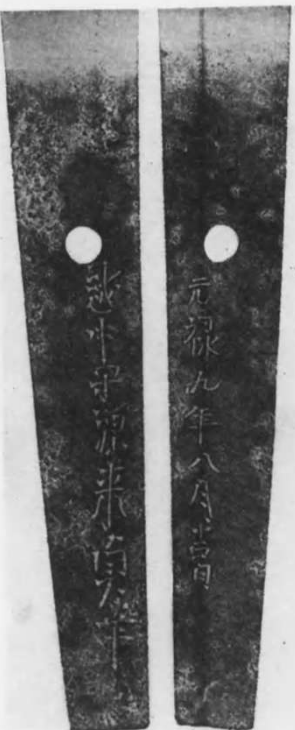 越中守源来
元禄九年八月吉日